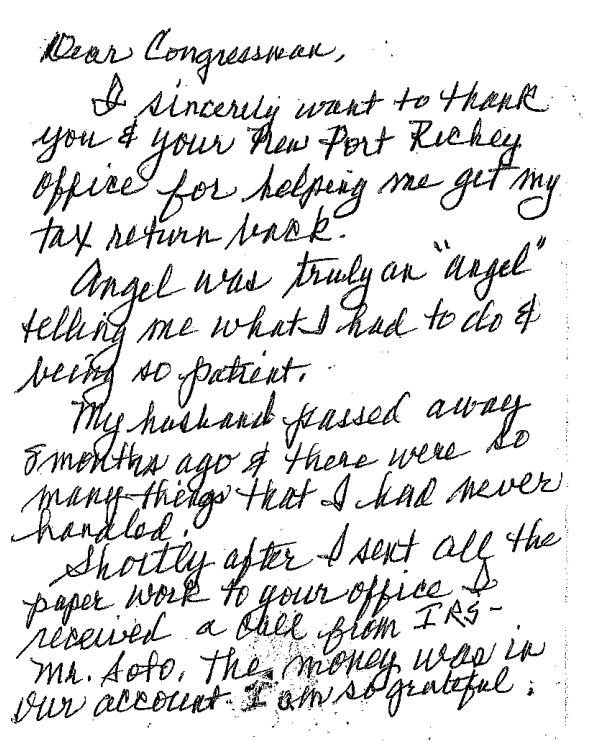 Dear Congressman,
I sincerely want to thank
you & your New Port Richey
office for helping me get my
tax return back.
Angel was truly an "angel"
telling me what I had to do &
being so patient.
My husband passed away
8 months ago & there were so
many things that I had never
handled.
Shortly after I sent all the
paper work to your office I
received a call from IRS-
Mr. Soto. The money was in
our account. I am so grateful.